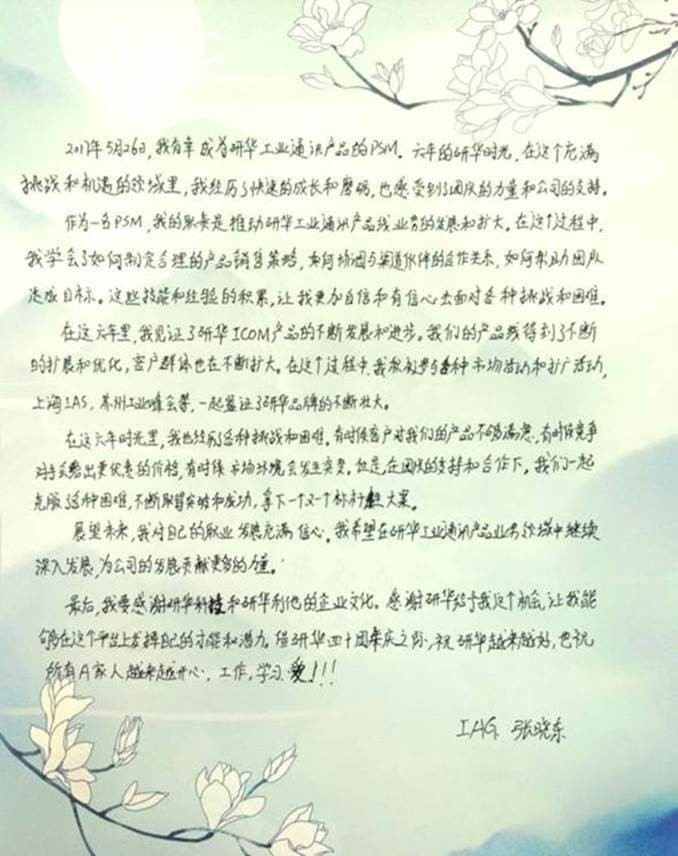 2017年5月26日,我有幸成为研华工业通讯产品的PSM。六年的研华时光,在这个充满
挑战和机遇的领域里,我经历了快速的成长和磨砺,也感受到了团队的力量和公司的支持。
作为一名PSM,我的职责是推动研华工业通讯产品线业务的发展和扩大。在这个过程中,
我学会了如何制定合理的产品销售策略,如何协调与渠道伙伴的合作关系,如何帮助团队
达成目标。这些技能和经验的积累,让我更加自信和有信心去面对各种挑战和困难。
在这六年里,我见证了研华ICOM产品的不断发展和进步。我们的产品线得到了不断
的扩展和优化,客户群体也在不断扩大。在这个过程中,我积极参与各种市场活动和推广活动,
上海IAS,苏州工业峰会等,一起鉴证了研华品牌的不断壮大。
在这六年时光里,我也经历了各种挑战和困难。有时候客户对我们的产品不够满意,有时候竞争
对手会给出更优惠的价格,有时候市场环境会发生突变。但是,在团队的支持和合作下,我们一起
克服了各种困难,不断取得突破和成功,拿下一个又一个标杆大案。
展望未来,我对自己的职业发展充满信心。我希望在研华工业通讯产品业务领域中继续
深入发展,为公司的发展贡献更多的力量。
最后,我要感谢研华科技和研华利他的企业文化。感谢研华给予我这个机会,让我能
够在这个平台上发挥自己的才能和潜力。借研华四十周年庆之际,祝研华越来越好,也祝
所有A家人越来越开心,工作,学习,爱!!!
IAG 张晓东